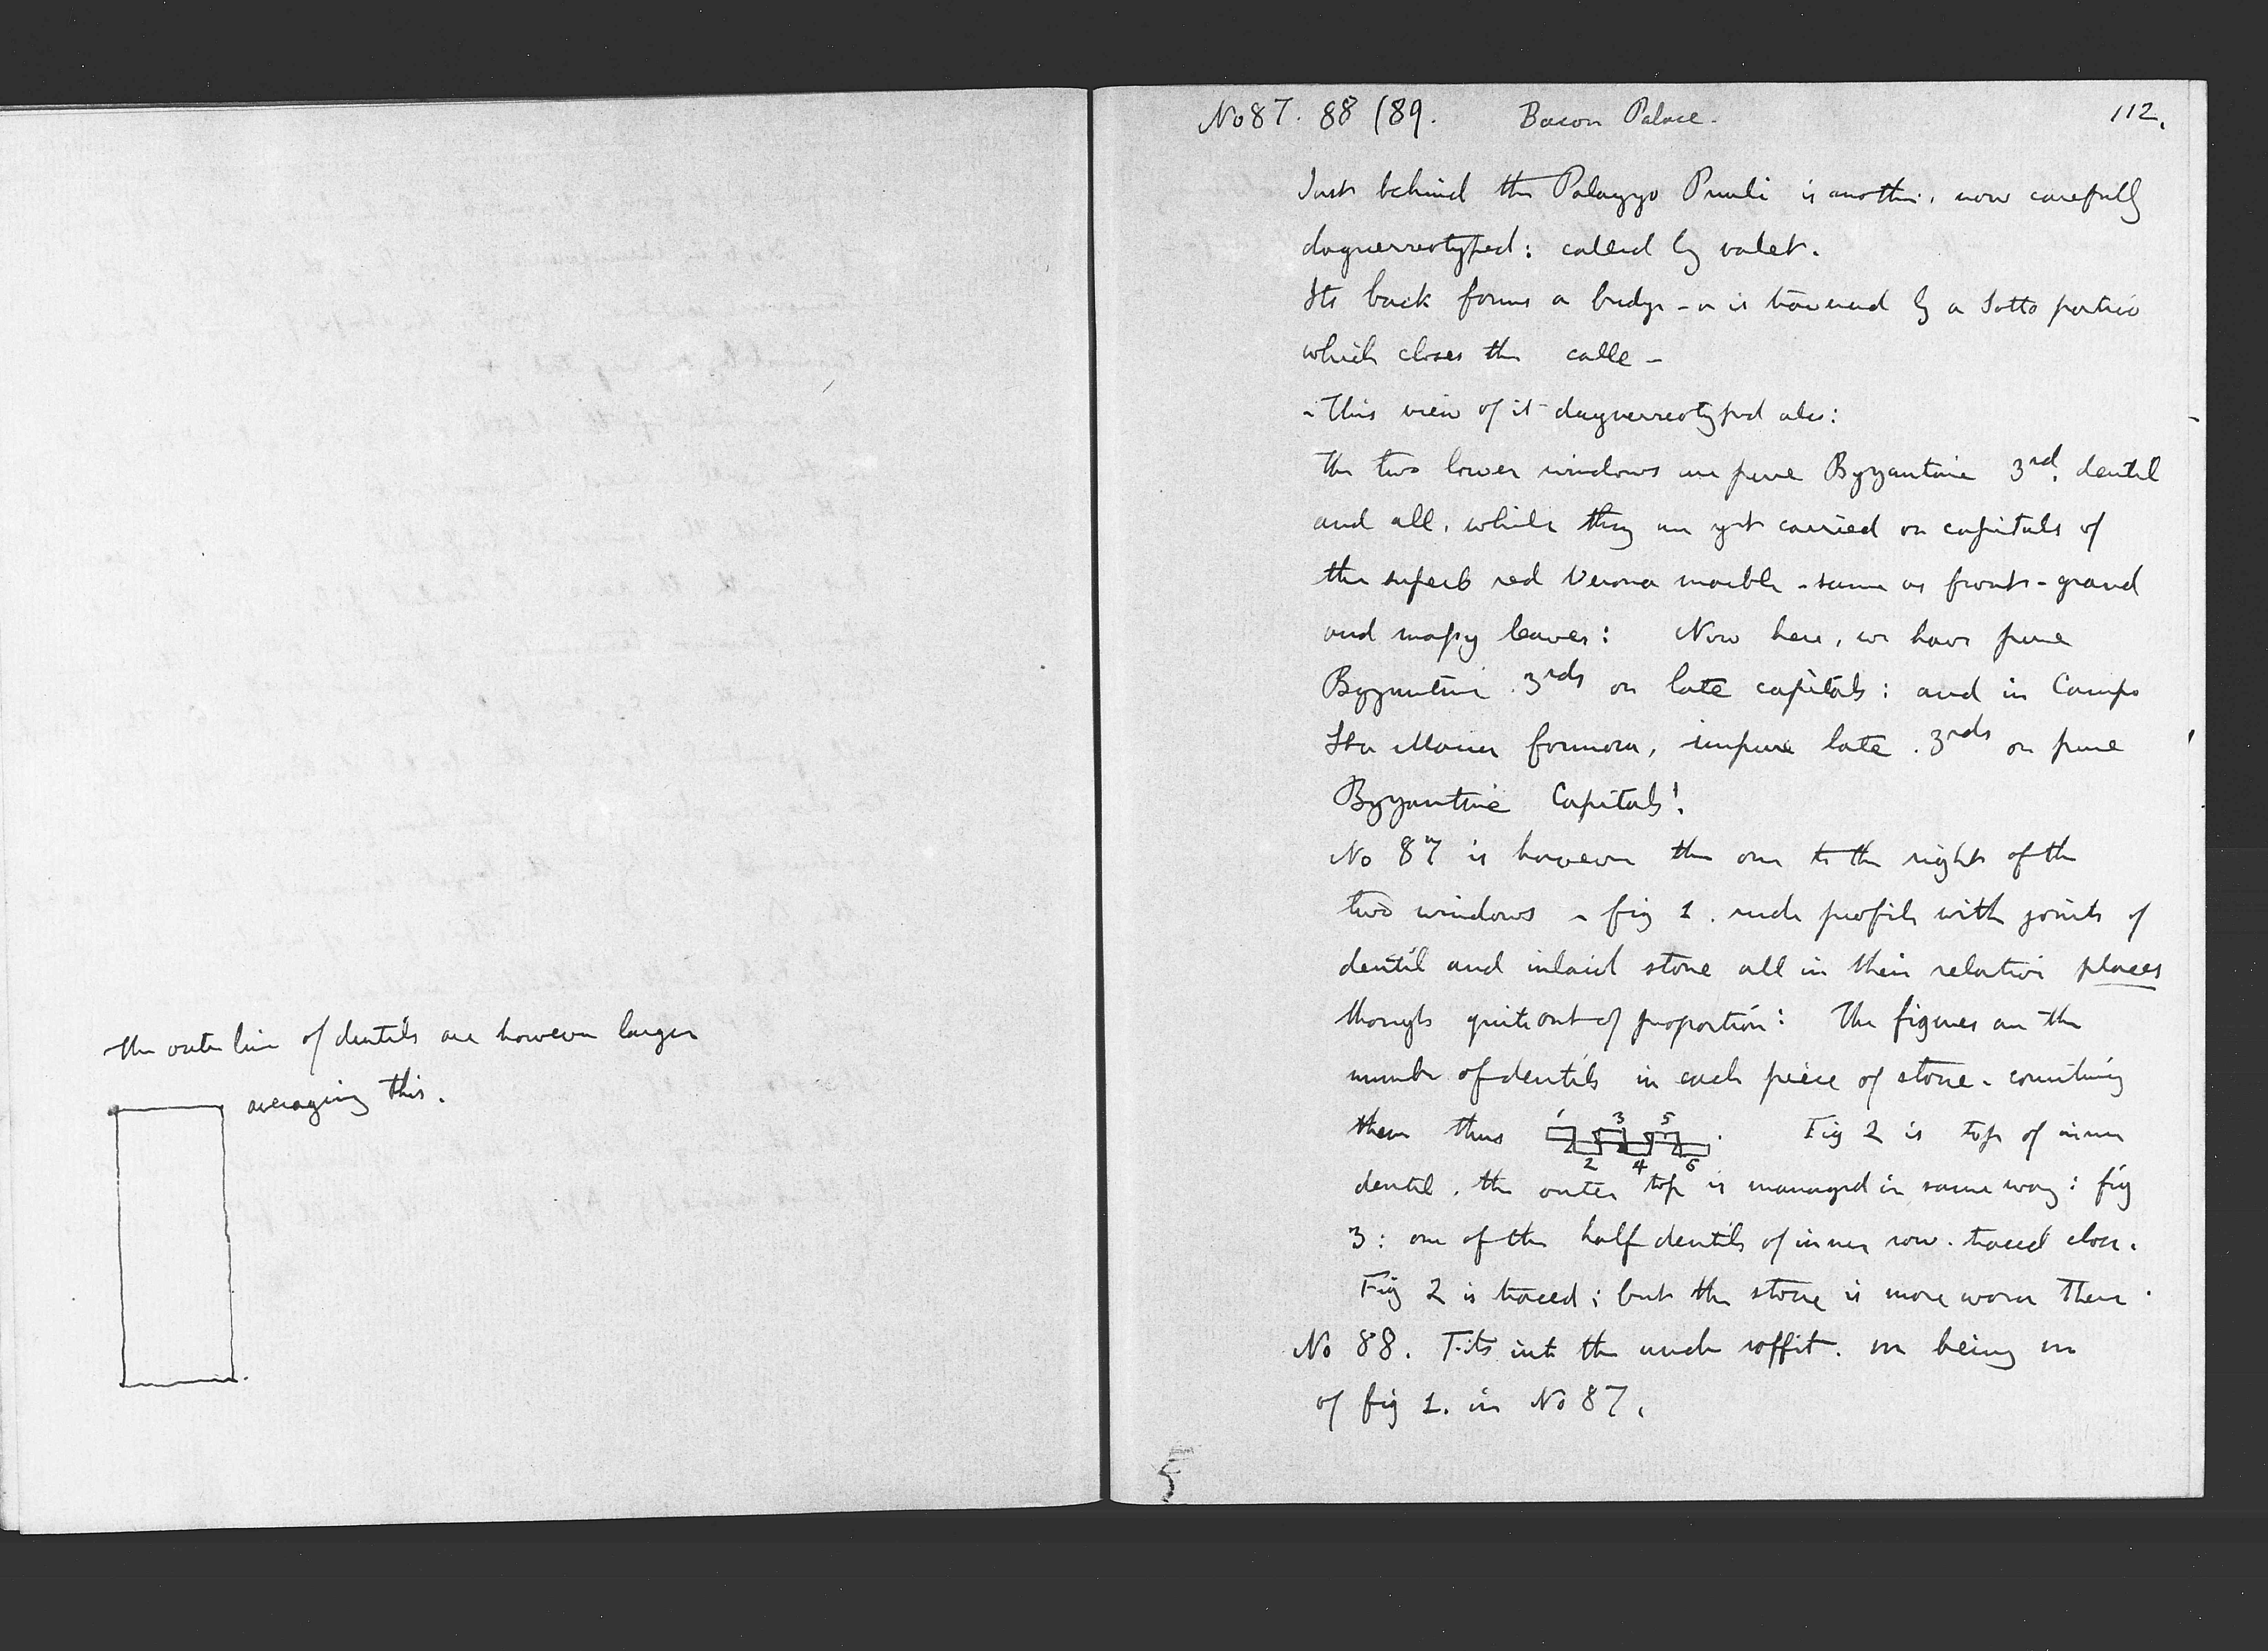 the outer line of dentils are however larger
averaging this.
No 87. 88 (89. Bacon Palace. 112.
Just behind the Palazzo Priuli is another, now carefully
daguerreotyped: called by valet.
Its back forms a bridge - or is traversed by a Sotto portico
which closes the calle -
- This view of it daguerreotyped also:
The two lower windows are pure Byzantine 3rd. dentil
and all, while they are yet carried on capitals of
the superb red Verona marble - same as front - grand
and massy leaves: Now here, we have pure
Byzantine 3rds on late capitals: and in Campo
Sta Maria formosa, impure late 3rds on pure
Byzantine Capitals!
No 87 is however the one to the right of the
two windows - fig 1. rude profile with joints of
dentil and inlaid stone all in their relative places
though quite out of proportion: The figures are the
number of dentils in each piece of stone - counting
them thus 1 3 5 . Fig 2 is top of inner
2 4 6
dentil, the outer top is managed in same way: fig
3: one of the half dentils of inner row. traced close.
Fig 2 is traced; but the stone is more worn there.
No 88. Fits into the under soffit. m being m
of fig 1. in No 87.